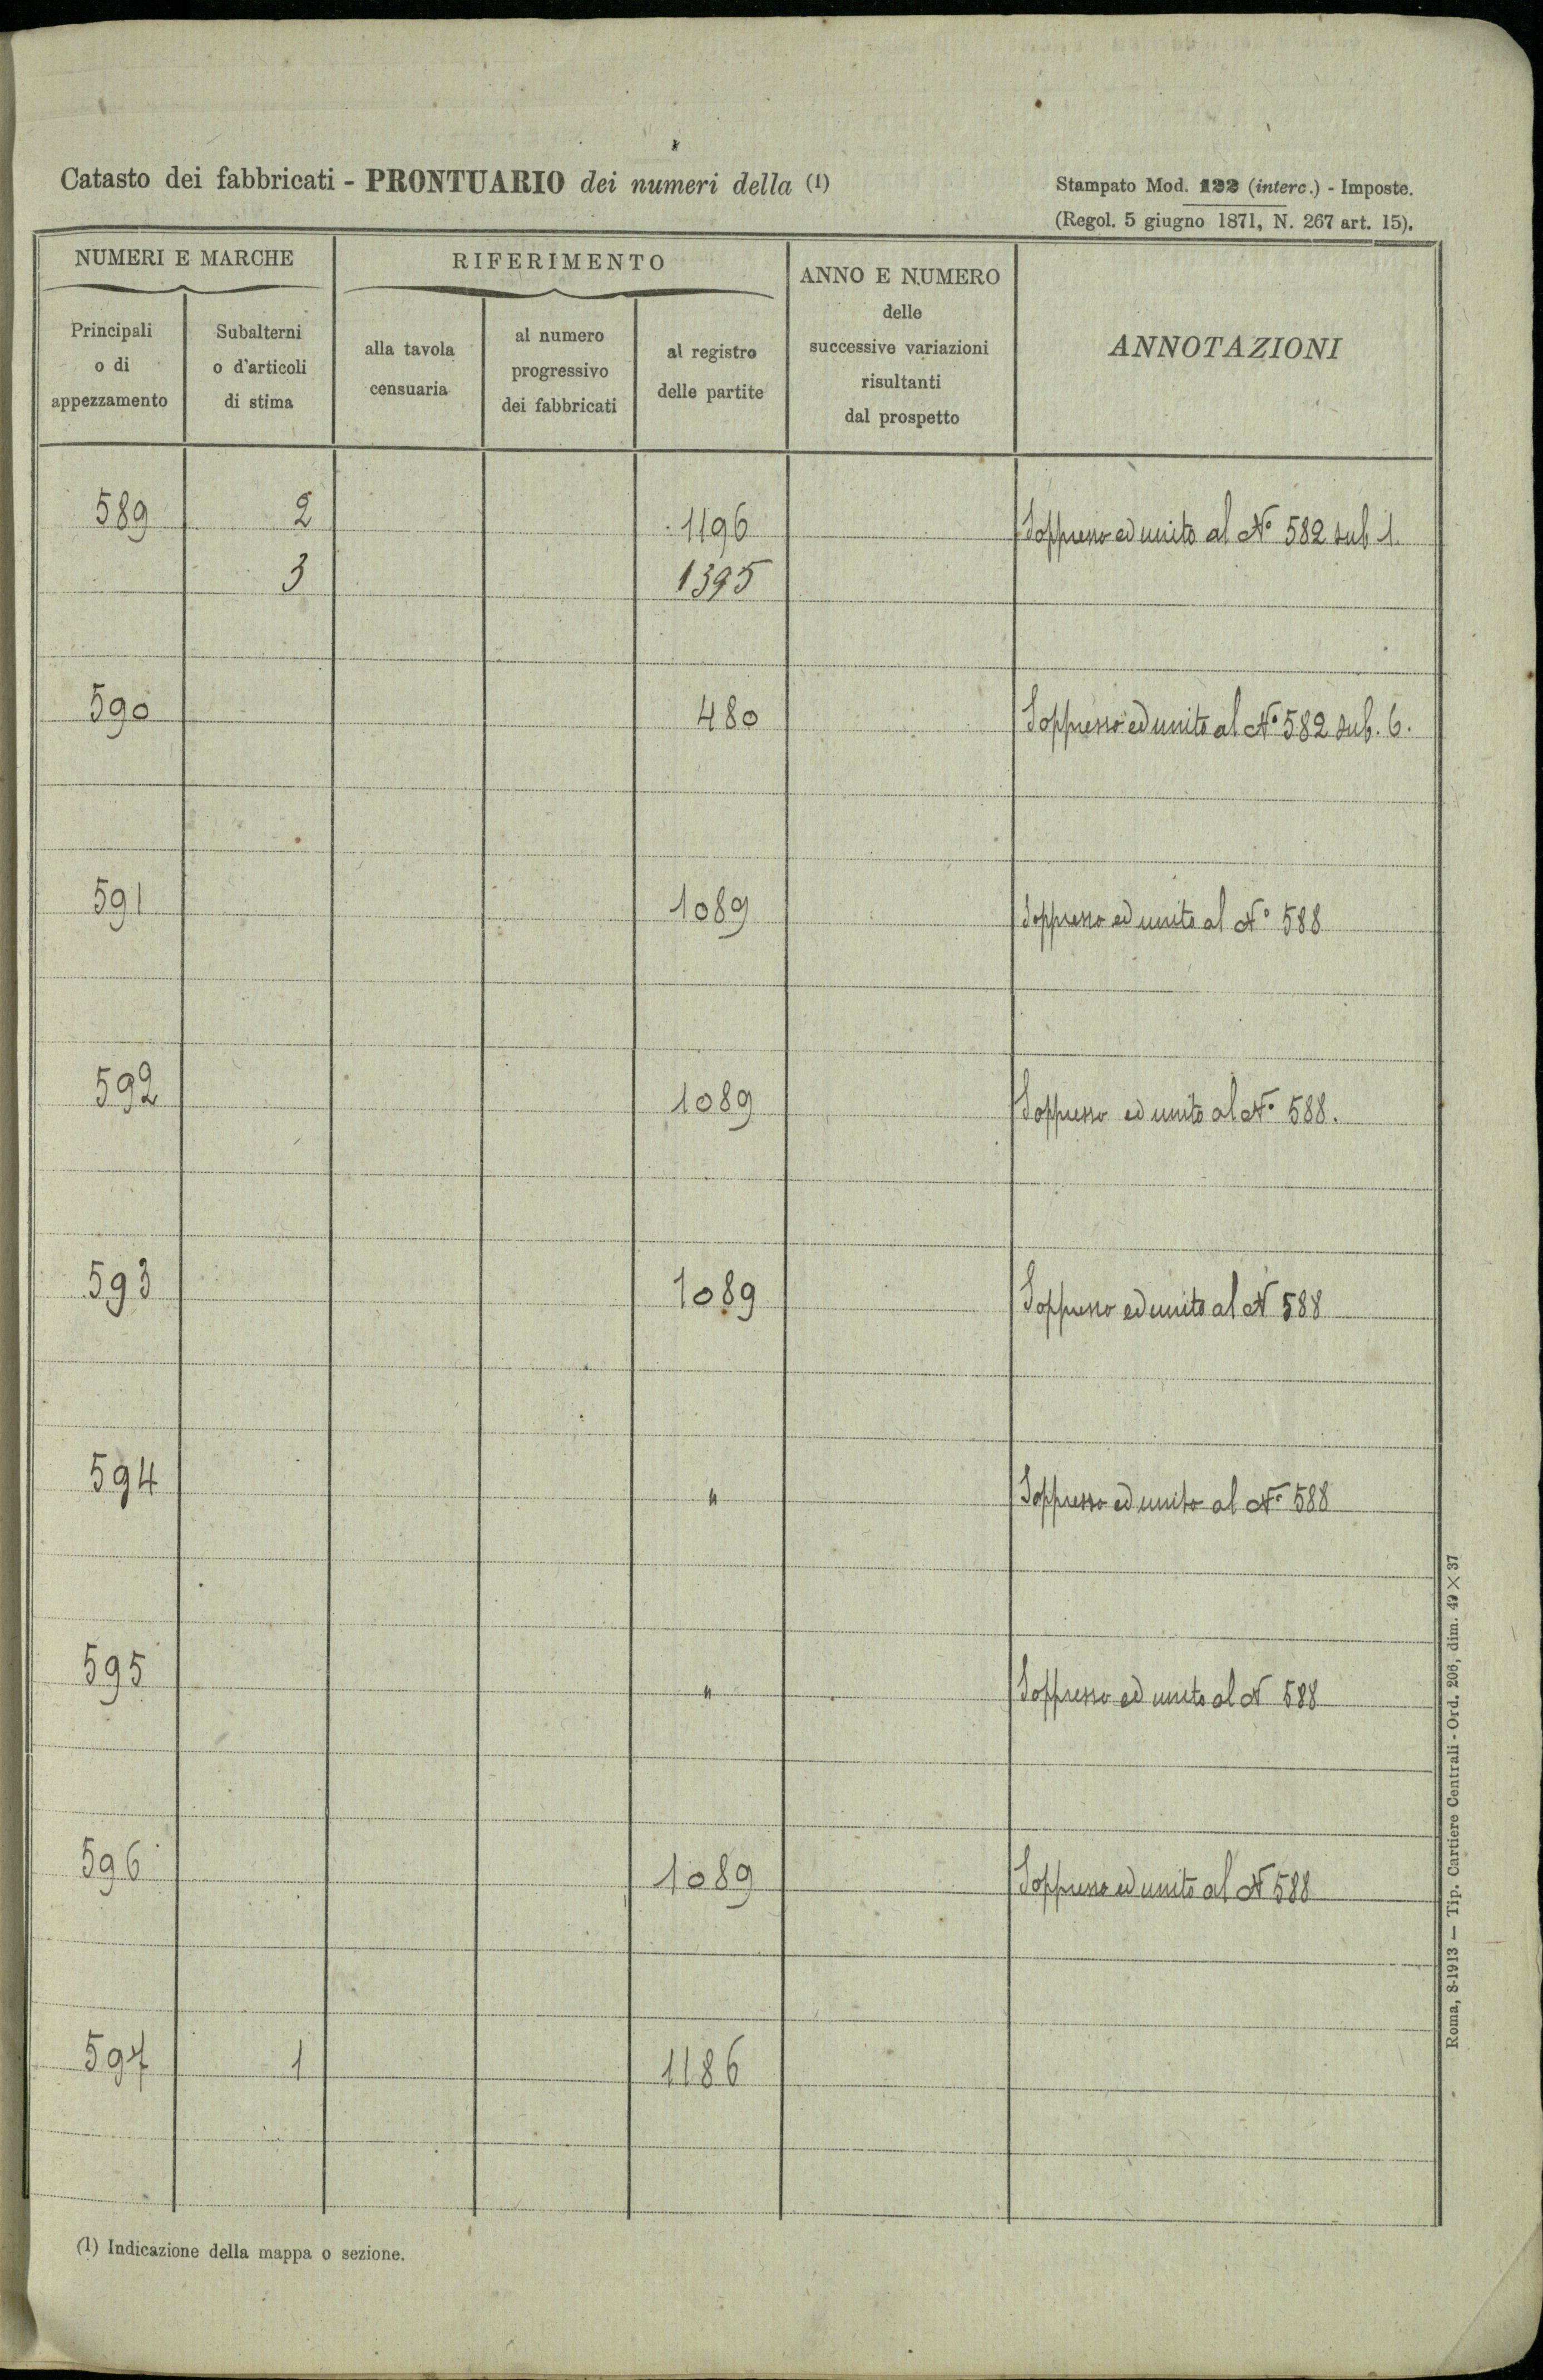 Catasto dei fabbricati - PRONTUARIO dei numeri della (1)
Stampato Mod. 122 (interc.) - Imposte.
(Regol. 5 giugno 1871, N. 267 art. 15).
NUMERI E MARCHE
RIFERIMENTO
ANNO E NUMERO
delle
successive variazioni
risultanti
dal prospetto
ANNOTAZIONI
Principali
o di
appezzamento
Subalterni
o d'articoli
di stima
alla tavola
censuaria
al numero
progressivo
dei fabbricati
al registro
delle partite
589 2 1196 Soppresso ed unito al N° 582 sub 1.
3 1395
590 480 Soppresso ed unito al N° 582 sub. 6.
591 1089 Soppresso ed unito al N° 588
592 1089 Soppresso ed unito al N° 588.
593 1089 Soppresso ed unito al N 588
594 " Soppresso ed unito al N° 588
595 " Soppresso ed unito al N 588
596 1089 Soppresso ed unito al N 588
597 1 1186
(1) Indicazione della mappa o sezione.
Roma, 8-1913 — Tip. Cartiere Centrali - Ord. 206, dim. 49 × 37